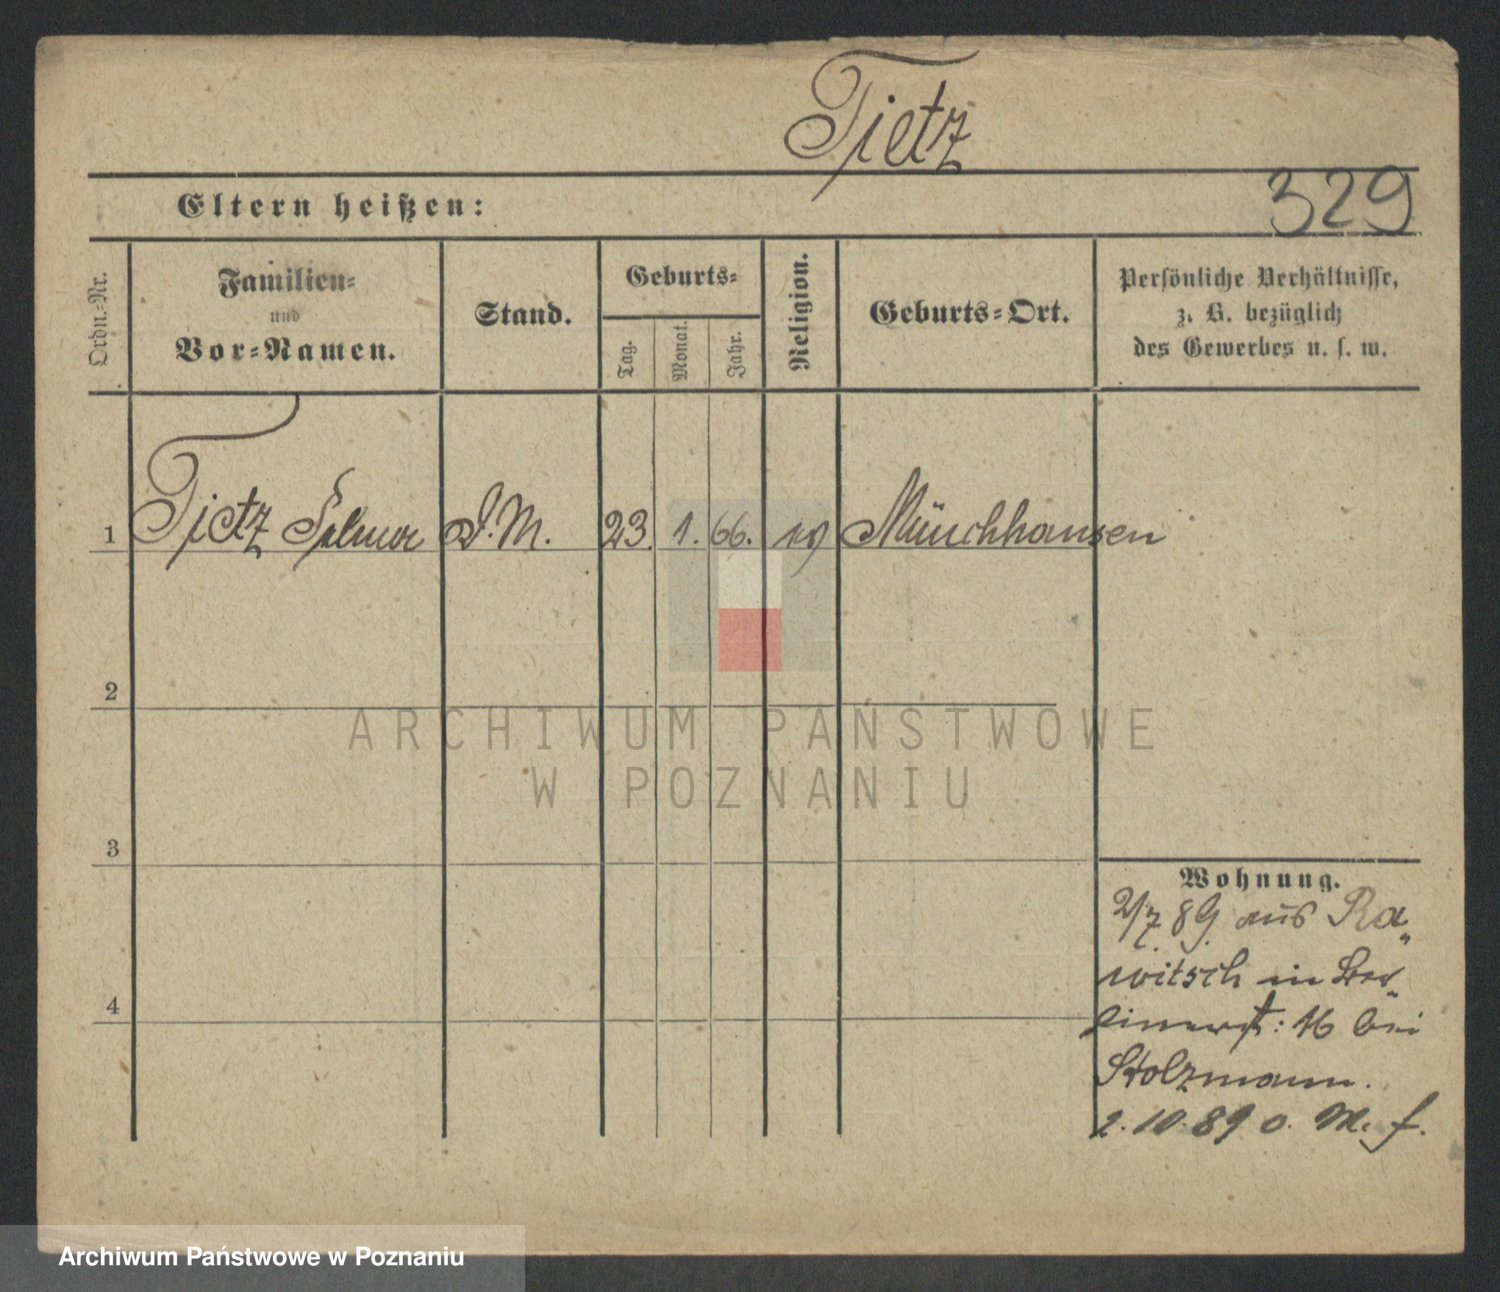 Tietz
Eltern heißen:
329
Ordn.-Nr.
Familien-
und
Vor-Namen.
Stand.
Geburts-
Tag.
Monat.
Jahr.
Religion.
Geburts-Ort.
Persönliche Verhältnisse,
z. B. bezüglich
des Gewerbes u. s. w.
1 Tietz Selma D. M. 23. 1. 66. Münchhausen
2
3
4
Wohnung.
2/7. 89. aus Ra„
witsch in Ber„
linerst: 16 bei
Stolzmann.
2. 10. 89 o. M. f.
ARCHIWUM PAŃSTWOWE
W POZNANIU
Archiwum Państwowe w Poznaniu